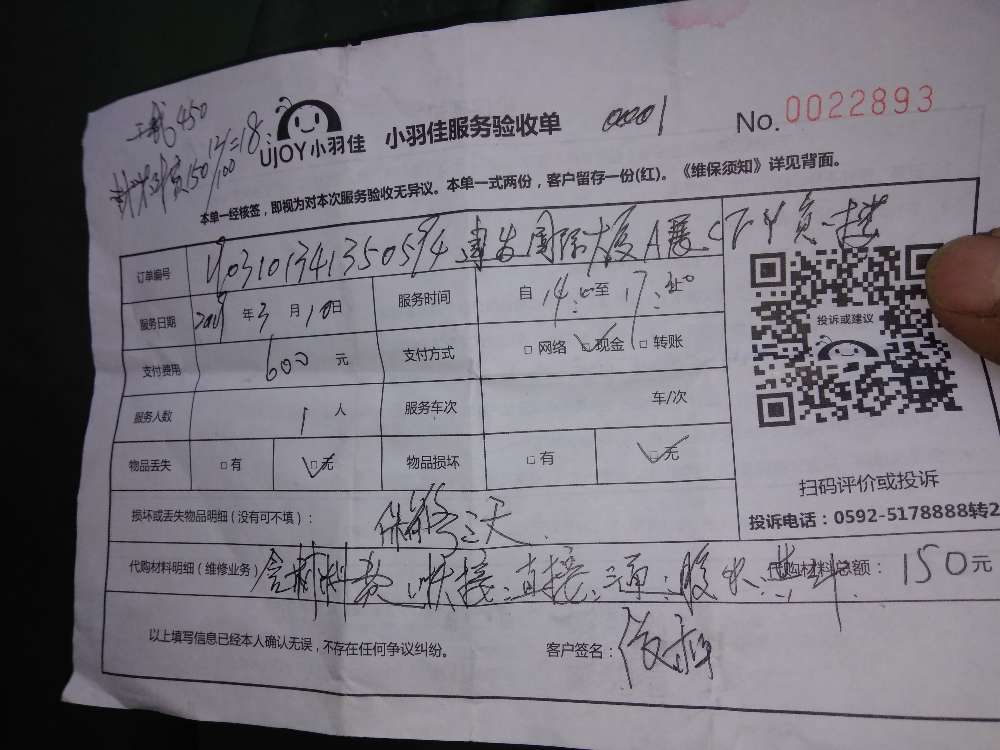 工费450
材料费150
UJOY小羽佳 小羽佳服务验收单 0001 No. 0022893
本单一经核签，即视为对本次服务验收无异议。本单一式两份，客户留存一份(红)。《维保须知》详见背面。
订单编号
服务日期 2019年3月10日 服务时间 自14:00至17:00止
支付费用 600元 支付方式 □网络 ☑现金 □转账
服务人数 1人 服务车次 车/次
物品丢失 □有 ☑无 物品损坏 □有 ☑无
损坏或丢失物品明细（没有可不填）： 保修三天
代购材料明细（维修业务） 含材料款 快接 直接 三通 胶水 共计 代购材料总额：150元
以上填写信息已经本人确认无误，不存在任何争议纠纷。 客户签名：
投诉或建议
扫码评价或投诉
投诉电话：0592-5178888转2